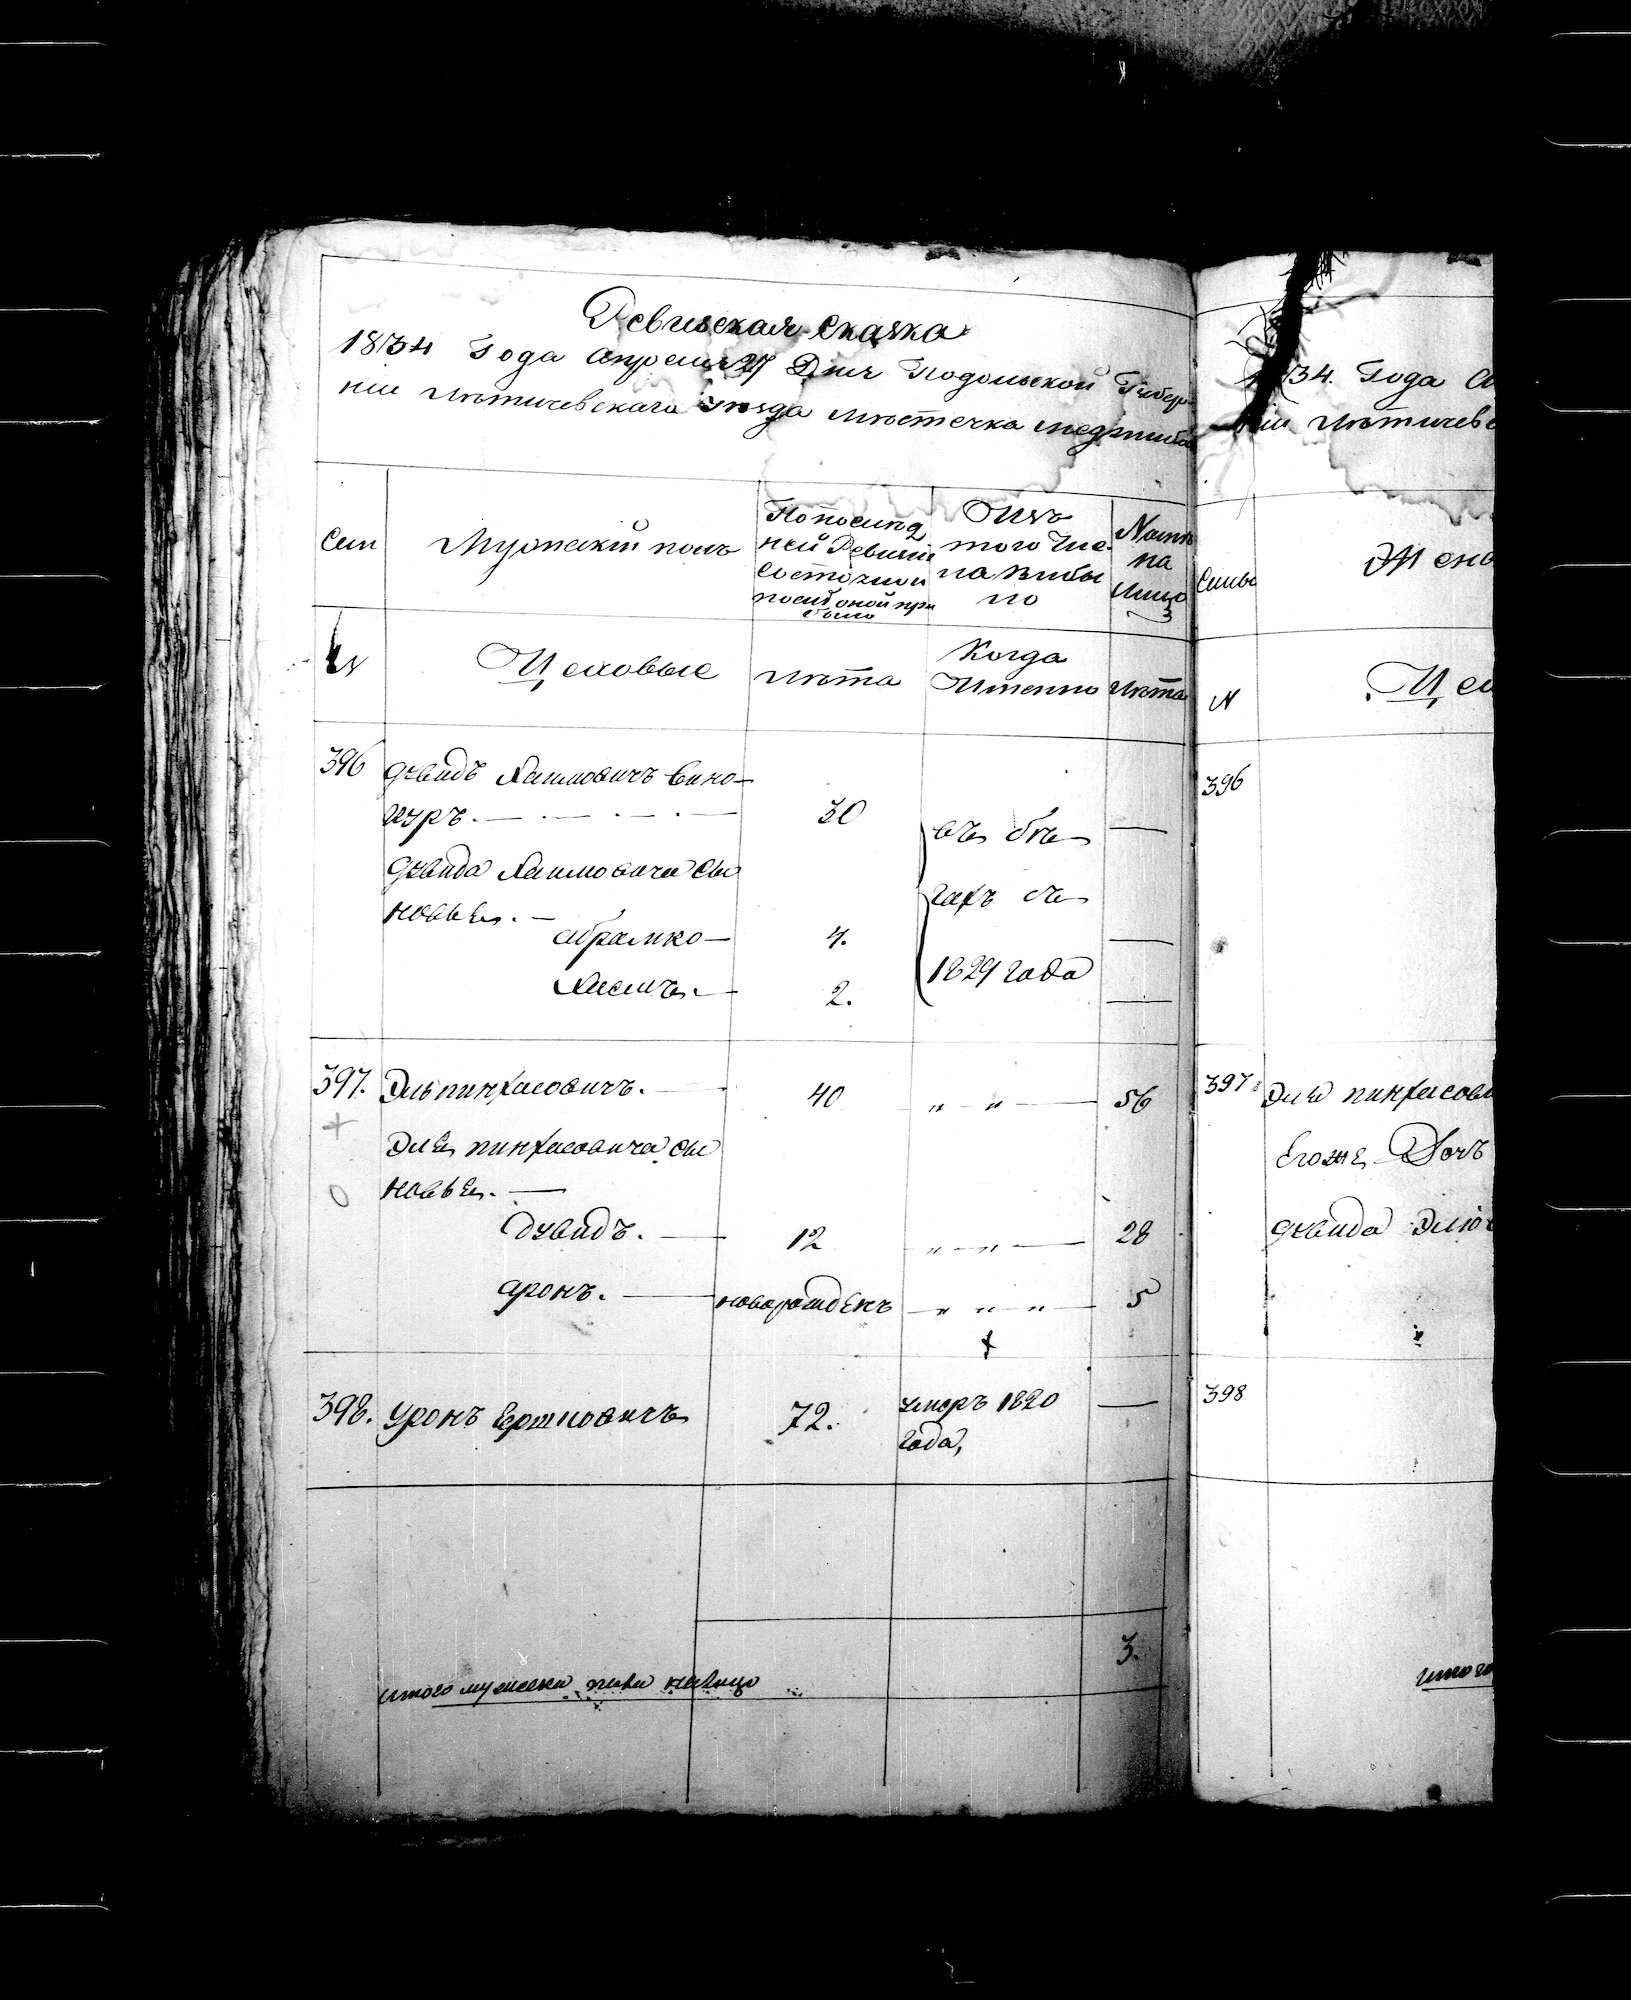 Ревизская Сказка
1834 Года Апреля 27 Дня Подольской Губер-
ніи Летичевскаго Уезда местечка меджиб
Сем
Мужескій полъ
По послед
ней Ревизіи
состояло и
после оной при
было
Изъ
того чис
ла выбы
ло
Ныне
на
лицо
№
Цеховые
лета
Когда
Именно
лета
396 Дувидъ Хаимовичъ Вино-
куръ. — 30
Дувида Хаимовича сы
новья. —
Абрамко — 4.
Хаимъ. — 2.
въ бе
гахъ съ
1829 года
397. Эль пинхасовичъ. — 40 „ „ — 56
Эля пинхасовича сы
новья. —
Дувидъ. — 12 „ „ — 28
Аронъ. — новорожденъ — „ „ „ — 5
398. Уронъ Ершковичъ 72. умеръ 1820 —
года,
3.
итого мужеска пола налицо
34. Года А
ніи Летичевс
Семьи
Жен
№
Це
396
397. Эля пинхасов
Егоже Дочь
Дувида Элю
398
итого